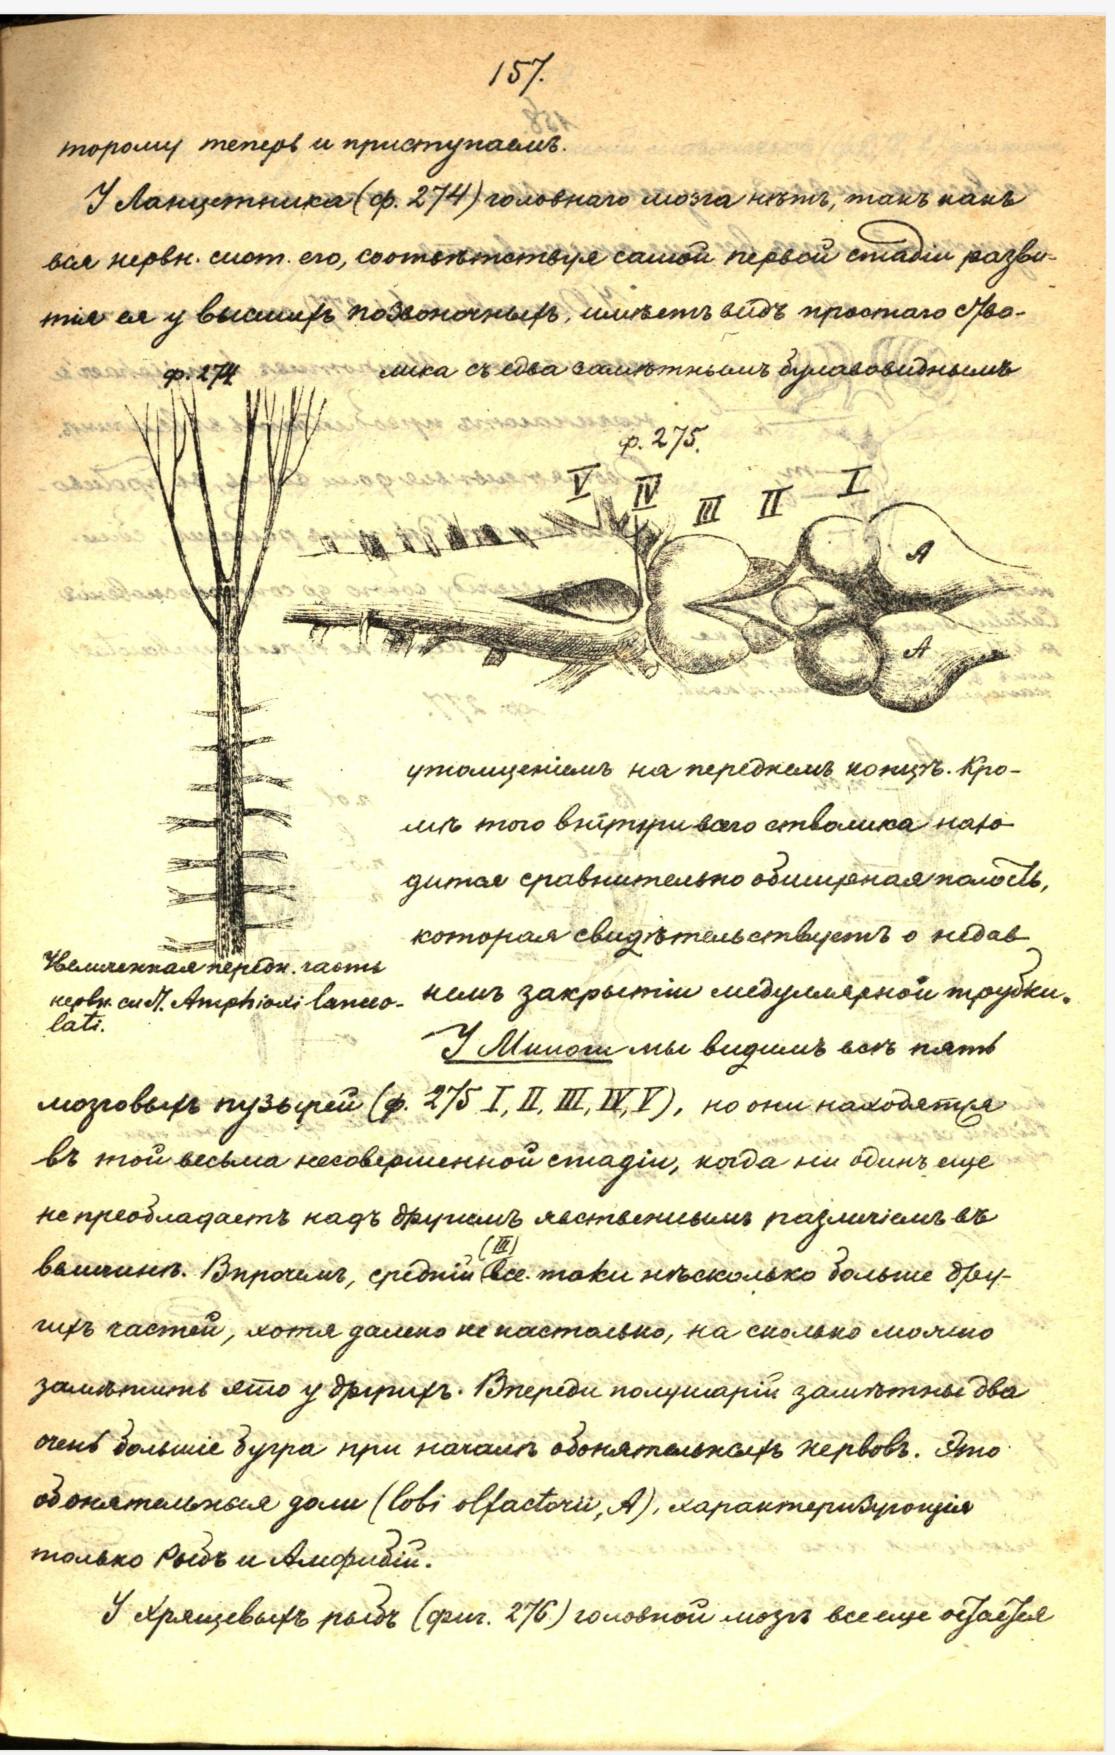 157.
торому теперь и приступаемъ.
У Ланцетника (ф. 274) головнаго мозга нѣтъ, такъ какъ
вся нервн. сист. его, соотвѣтствуя самой первой стадіи разви-
тія ея у высшихъ позвоночныхъ, имѣетъ видъ простаго ство-
ф. 274
лика съ едва замѣтнымъ булавовиднымъ
ф. 275.
V IV III II I
A
A
утолщеніемъ на переднемъ концѣ. Кро-
мѣ того внутри всего стволика нахо-
дится сравнительно обширная полость,
которая свидѣтельствуетъ о недав-
немъ закрытіи медуллярной трубки.
Увеличенная передн. часть
нервн. сист. Amphioxi lanceo-
lati.
У Миноги мы видимъ всѣ пять
мозговыхъ пузырей (ф. 275 I, II, III, IV, V), но они находятся
въ той весьма несовершенной стадіи, когда ни одинъ еще
не преобладаетъ надъ другимъ явственнымъ различіемъ въ
величинѣ. Впрочемъ, средній (III) все таки нѣсколько больше дру-
гихъ частей, хотя далеко не настолько, на сколько можно
замѣтить это у другихъ. Впереди полушарій замѣтны два
очень большіе бугра при началѣ обонятельныхъ нервовъ. Это
обонятельныя доли (lobi olfactorii, A), характеризующія
только Рыбъ и Амфибій.
У Хрящевыхъ рыбъ (фиг. 276) головной мозгъ все еще остается